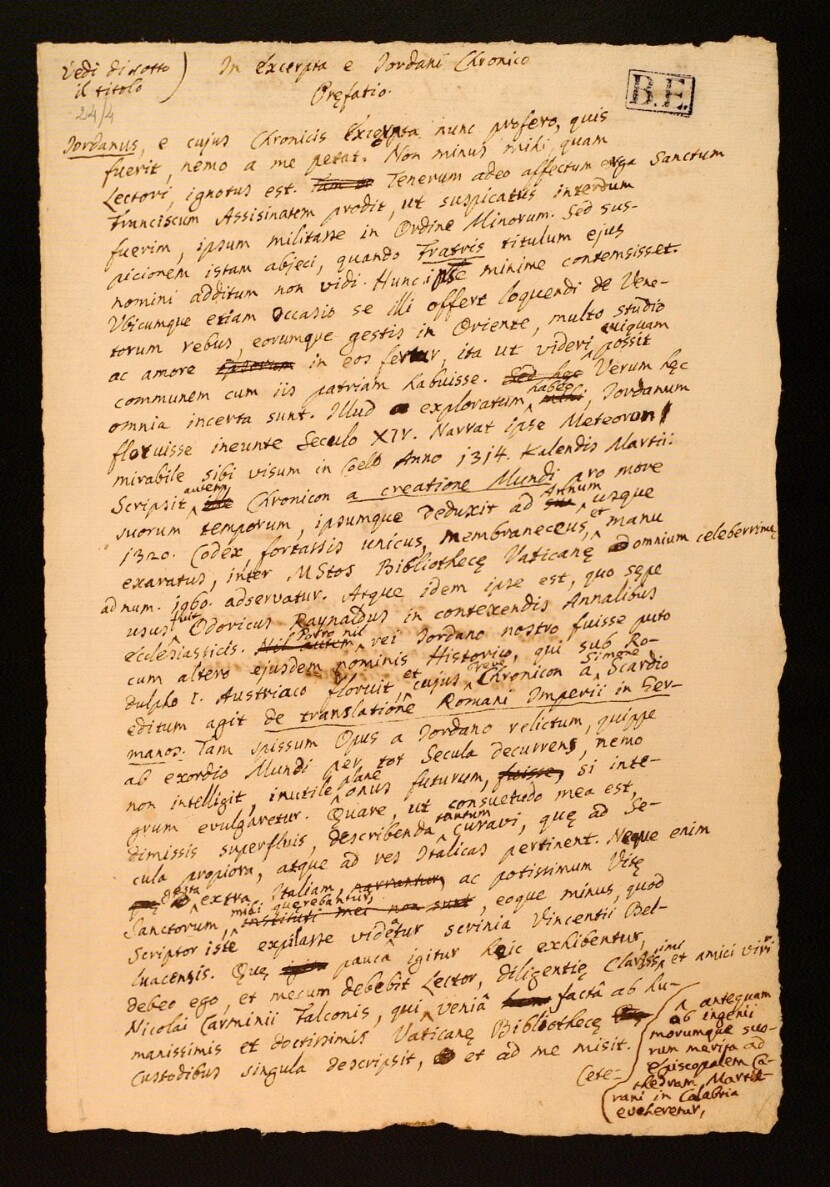 Vedi di sotto
il titolo
24/4
In Excerpta e Jordani Chronico
Pręfatio.
B.E.
Jordanus, e cujus Chronicis Excerpta nunc profero, quis
fuerit, nemo a me petat. Non minus mihi, quam
Lectori, ignotus est. Tenerum adeo affectum erga Sanctum
Franciscum Assisinatem prodit, ut suspicatus interdum
fuerim, ipsum militasse in Ordine Minorum. Sed sus-
picionem istam abjeci, quando Fratris titulum ejus
nomini additum non vidi. Hunc ipse minime contemsisset.
Ubicumque etiam occasio se illi offert loquendi de Vene-
torum rebus, eorumque gestis in Oriente, multo studio
ac amore ipsorum in eos fertur, ita ut videri cuiquam possit
communem cum iis patriam habuisse. Sed hęc Verum hęc
omnia incerta sunt. Illud exploratum habeo, mihi, Jordanum
floruisse ineunte Seculo XIV. Narrat ipse Meteoron
mirabile sibi visum in Coelo Anno 1314. Kalendis Martii:
Scripsit autem Chronicon a creatione Mundi pro more
suorum temporum, ipsumque deduxit ad Annum usque
1320. Codex fortassis unicus, membranaceus, et manu
exaratus, inter MStos Bibliothecę Vaticanę omnium celeberrimę
ad num. 1960. adservatur. Atque idem ipse est, quo sępe
usus fuit Odoricus Raynaldus in contexendis Annalibus
Ecclesiasticis. Nil autem Porro nil rei Jordano nostro fuisse puto
cum altero ejusdem nominis Historico, qui sub Ro-
dulpho I. Austriaco floruit, et cujus breve Chronicon a Simone Scardio
editum agit de translatione Romani Imperii in Ger-
manos. Tam spissum Opus a Jordano relictum, quippe
ab exordio Mundi per tot Secula decurrens, nemo
non intelligit, inutile plane onus futurum, fuisse, si inte-
grum evulgaretur. Quare, ut consuetudo mea est,
dimissis superfluis, describenda tantum curavi, quę ad Se-
cula propiora, atque ad res Italicas pertinent. Neque enim
gesta extra Italiam, narrantur, ac potissimum Vitę
Sanctorum, mihi quęrebantur, instituti mei non sunt, eoque minus, quod
Scriptor iste expilasse videtur scrinia Vincentii Bel-
luacensis. Quę pauca igitur heic exhibentur,
debeo ego, et mecum debebit Lector, diligentię Clarissimi et amici viri
Nicolai Carminii Falconis, qui veniâ factâ ab hu-
manissimis et doctissimis Vaticanę Bibliothecę
Custodibus singula descripsit, et ad me misit.
Cete-
antequam
ob ingenii
morumque suo-
rum merita ad
Episcopalem Ca-
thedram Martu-
rani in Calabria
eveheretur,